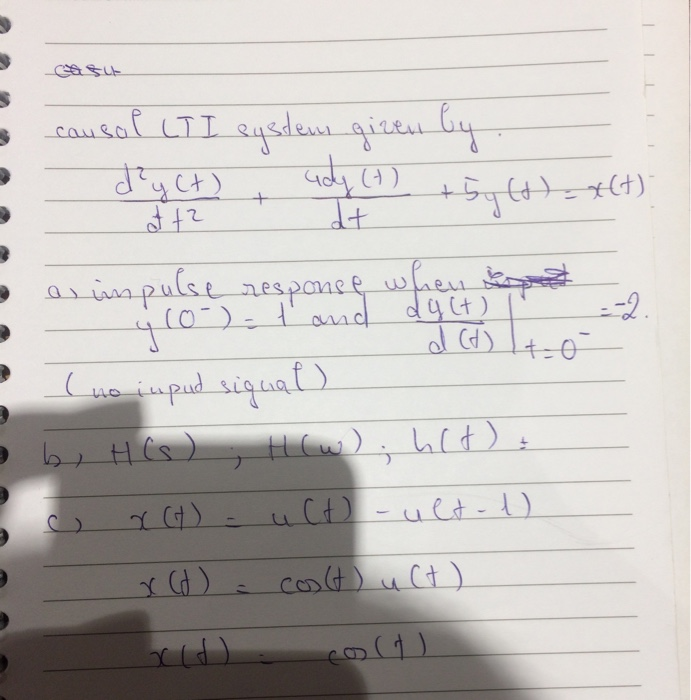 causal LTI system given by.
d²y(t)/dt² + 4dy(t)/dt + 5y(t) = x(t)
a, impulse response when
y(0⁻) = 1 and dy(t)/d(t) | t=0⁻ = -2.
(no input signal)
b, H(s) ; H(w) ; h(t) :
c) x(t) = u(t) - u(t-1)
x(t) = cos(t) u(t)
x(t) = cos(t)